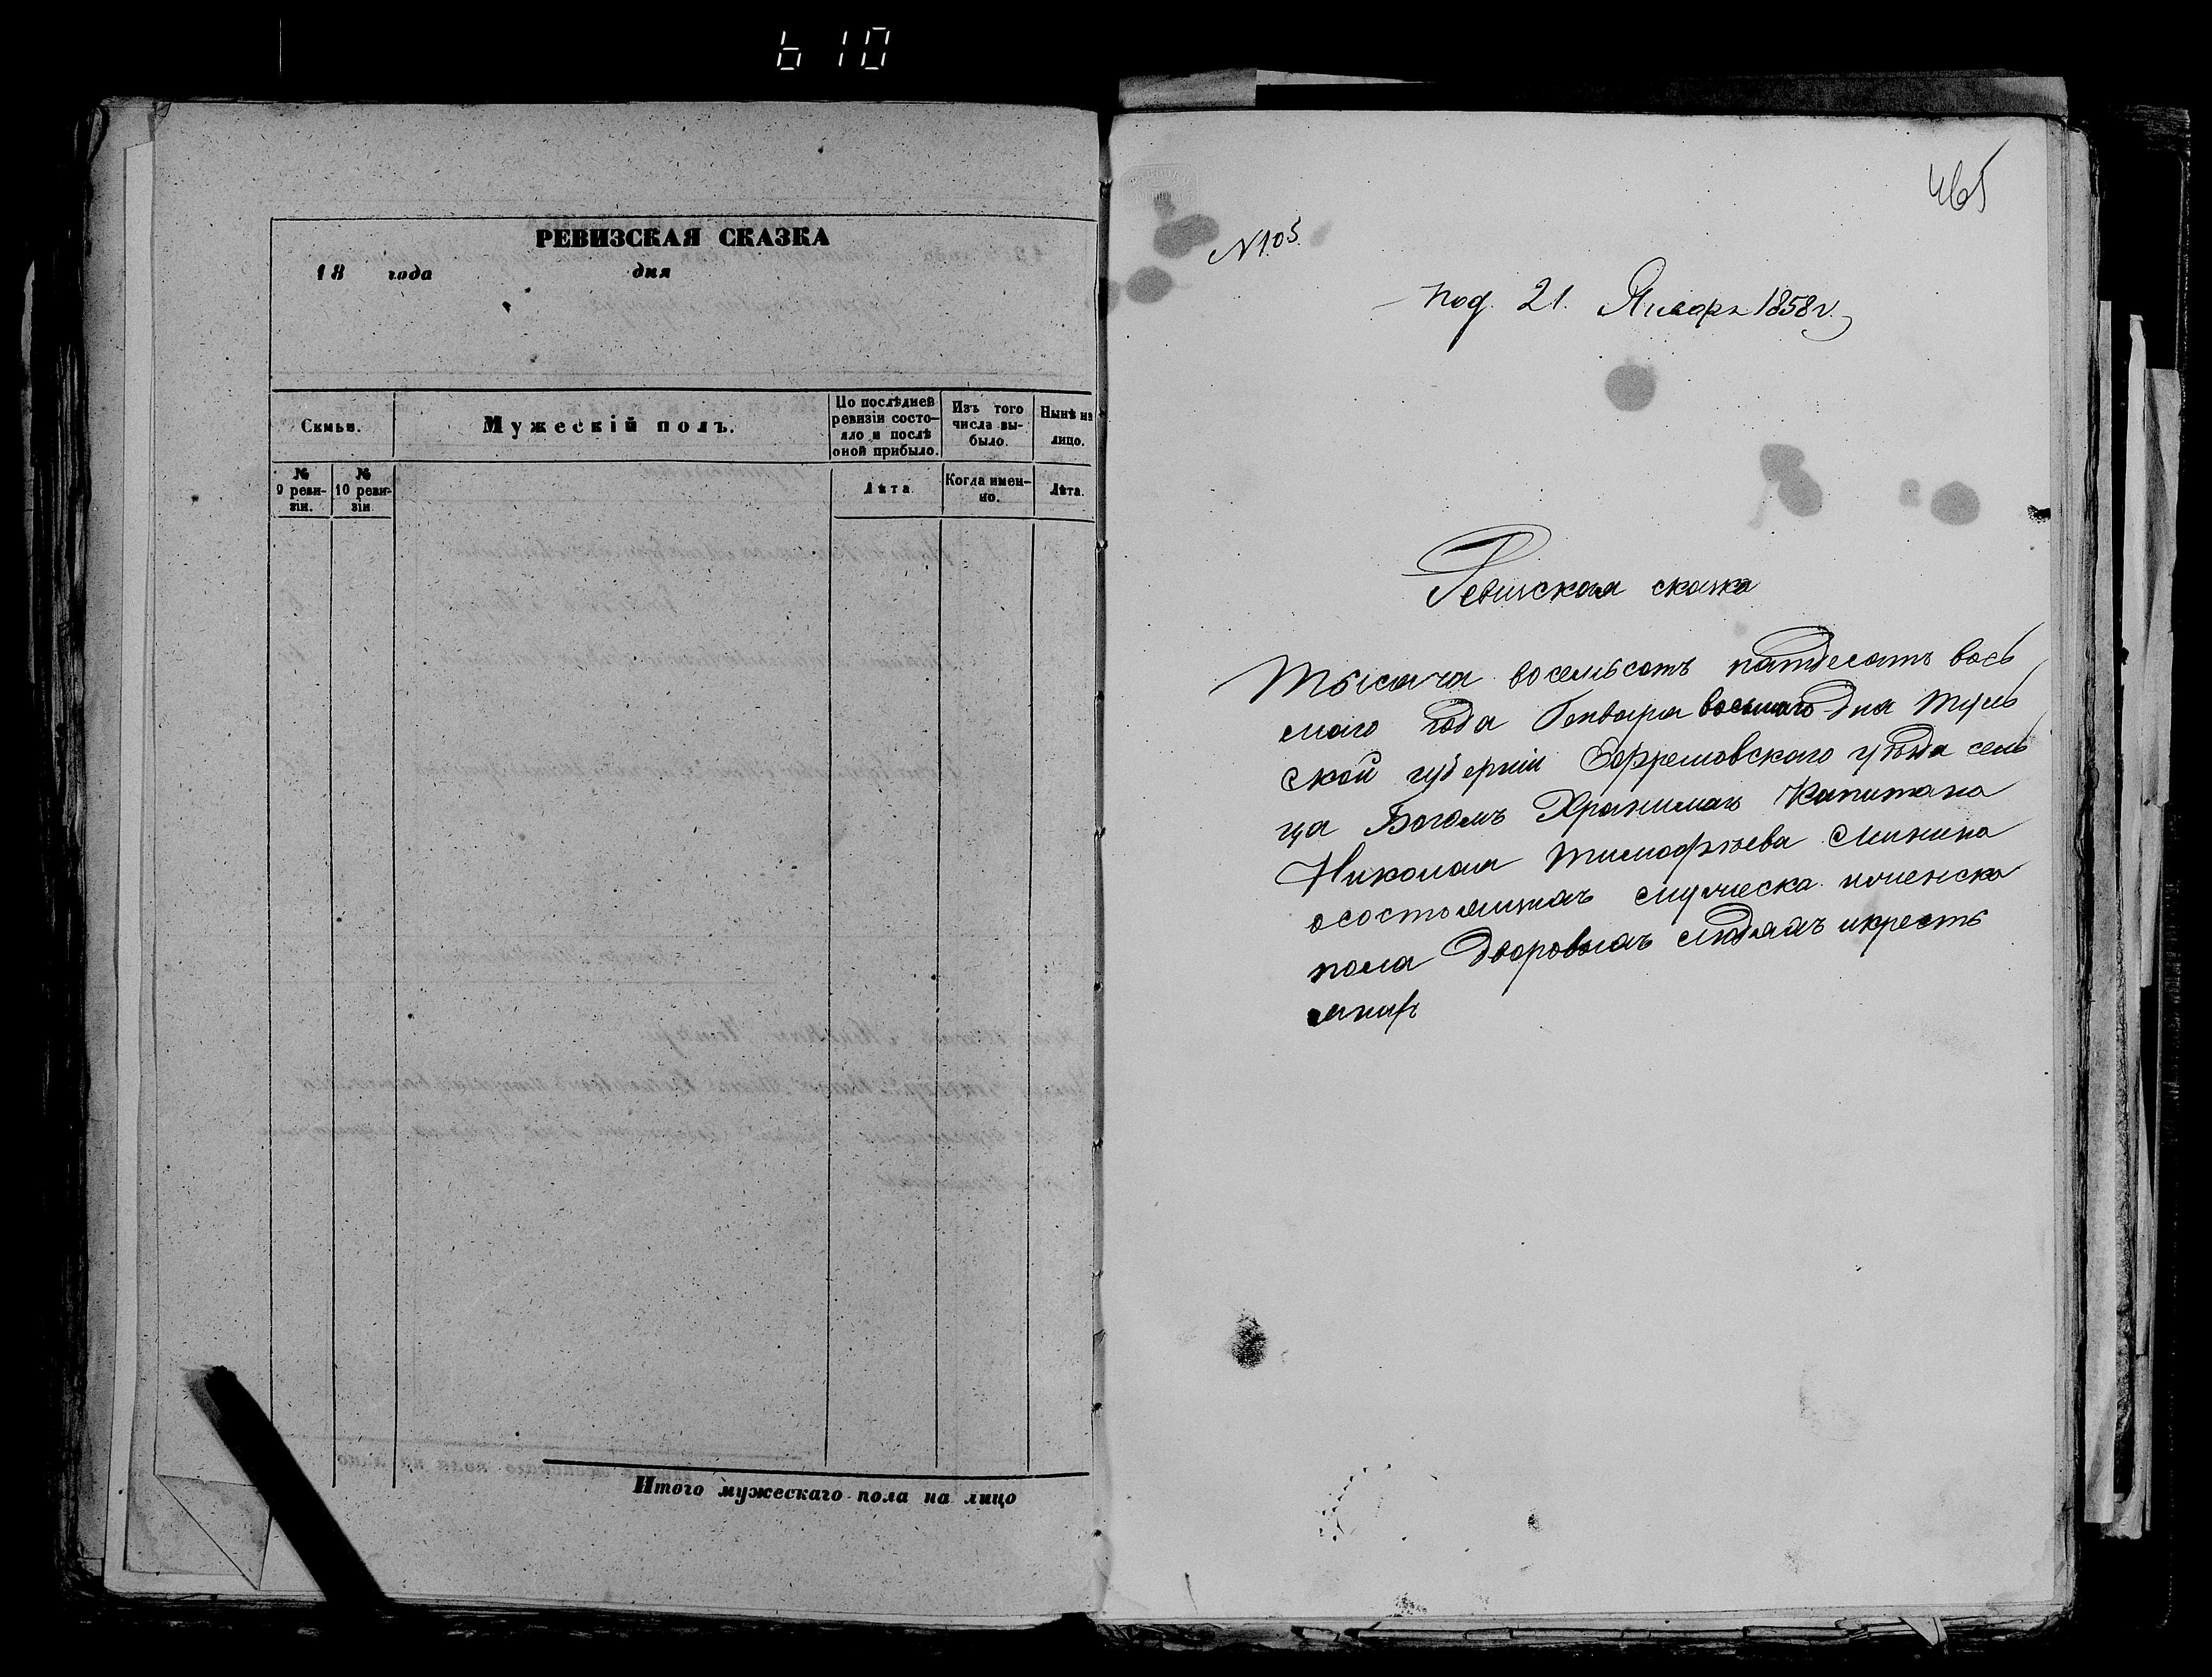 610
РЕВИЗСКАЯ СКАЗКА
18 года дня
Семьи.
Мужескій полъ.
По послѣдней ревизіи состояло и послѣ оной прибыло.
Изъ того числа выбыло.
Нынѣ на лицо.
№ 9 ревизіи.
№ 10 ревизіи.
Лѣта.
Когда именно.
Лѣта.
Итого мужескаго пола на лицо
465
№105.
под. 21. Января 1858 г.
Ревисская сказка
Тысяча восемьсотъ пятдесятъ вось
маго года Генваря восьмаго дня туль
ской губерніи Ефремовского уѣзда сель
ца Богомъ Хранимаго Капитана
Николая Тимофѣева Минина
осостоящихъ мужеска иженска
пола дворовыхъ людяхъ икресть
янахъ